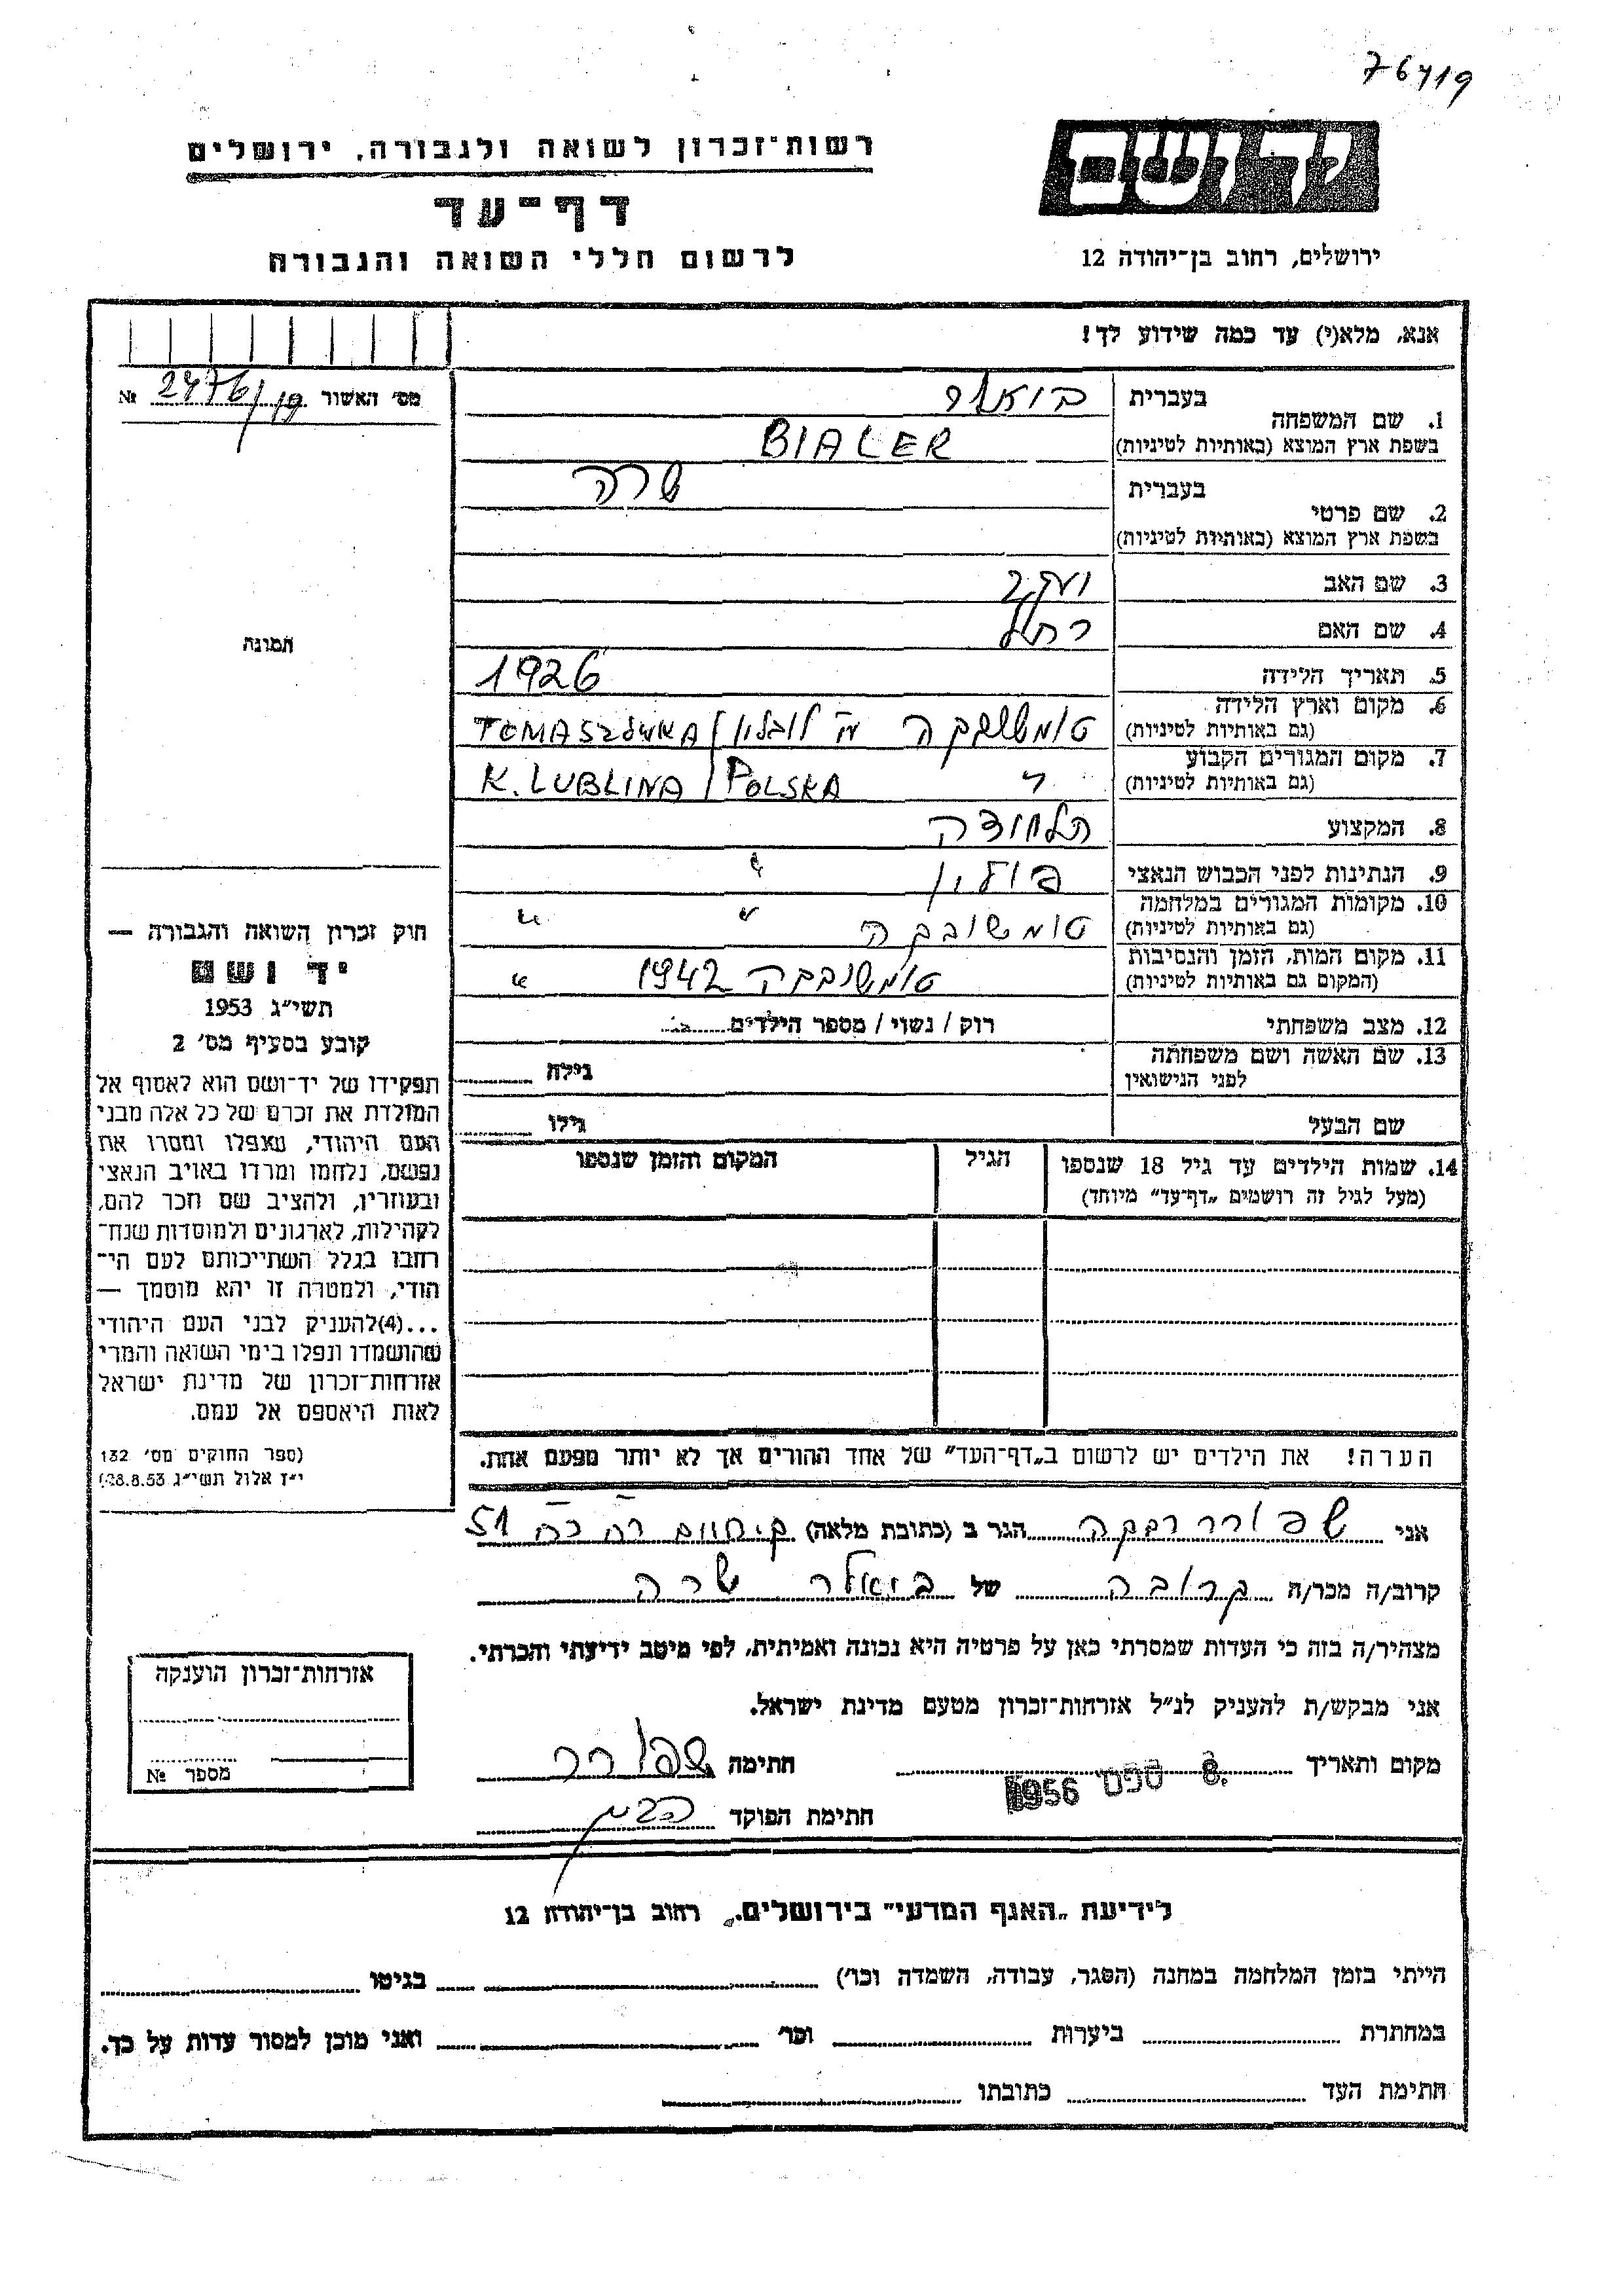 76419
רשות־זכרון לשואה ולגבורה, ירושלים
ידושם
דף־עד
לרשום חללי השואה והגבורה
ירושלים, רחוב בן־יהודה 12
אנא, מלא(י) עד כמה שידוע לך!
מס׳ האשור 2476/19 №
1. שם המשפחה
בעברית ביאלר
בשפת ארץ המוצא (באותיות לטיניות) BIALER
2. שם פרטי
בעברית שרה
בשפת ארץ המוצא (באותיות לטיניות)
3. שם האב יעקב
4. שם האם רחל
תמונה
5. תאריך הלידה 1926
6. מקום וארץ הלידה
(גם באותיות לטיניות) טומשובקה ע״י לובלין / TOMASZÓWKA
7. מקום המגורים הקבוע
(גם באותיות לטיניות) " K. LUBLINA / POLSKA
8. המקצוע תלמידה
9. הנתינות לפני הכבוש הנאצי פולין
10. מקומות המגורים במלחמה
(גם באותיות לטיניות) טומשובקה " "
11. מקום המות, הזמן והנסיבות
(המקום גם באותיות לטיניות) טומשובקה 1942 "
12. מצב משפחתי רוק / נשוי / מספר הילדים
13. שם האשה ושם משפחתה
לפני הנישואין
גילה
שם הבעל גילו
14. שמות הילדים עד גיל 18 שנספו
(מעל לגיל זה רושמים „דף־עד” מיוחד)
הגיל
המקום והזמן שנספו
הערה! את הילדים יש לרשום ב„דף־העד” של אחד ההורים אך לא יותר מפעם אחת.
חוק זכרון השואה והגבורה —
יד ושם
תשי״ג 1953
קובע בסעיף מס׳ 2
תפקידו של יד־ושם הוא לאסוף אל
המולדת את זכרם של כל אלה מבני
העם היהודי, שנפלו ומסרו את
נפשם, נלחמו ומרדו באויב הנאצי
ובעוזריו, ולהציב שם וזכר להם,
לקהילות, לארגונים ולמוסדות שנח־
רבו בגלל השתייכותם לעם הי־
הודי, ולמטרה זו יהא מוסמך —
...(4)להעניק לבני העם היהודי
שהושמדו ונפלו בימי השואה והמרי
אזרחות־זכרון של מדינת ישראל
לאות היאספם אל עמם.
(ספר החוקים מס׳ 132
י״ז אלול תשי״ג 28.8.53)
אני שפורר רבקה הגר ב (כתובת מלאה) 51
קרוב/ה מכר/ה קרובה של ביאלר שרה
מצהיר/ה בזה כי העדות שמסרתי כאן על פרטיה היא נכונה ואמיתית, לפי מיטב ידיעתי והכרתי.
אני מבקש/ת להעניק לנ״ל אזרחות־זכרון מטעם מדינת ישראל.
מקום ותאריך 8. ספט׳ 1956 חתימה שפורר
חתימת הפוקד
אזרחות־זכרון הוענקה
מספר №
לידיעת „האגף המדעי” בירושלים, רחוב בן־יהודה 12
הייתי בזמן המלחמה במחנה (הסגר, עבודה, השמדה וכו׳) בגיטו
במחתרת ביערות וכו׳ ואני מוכן למסור עדות על כך.
חתימת העד כתובתו